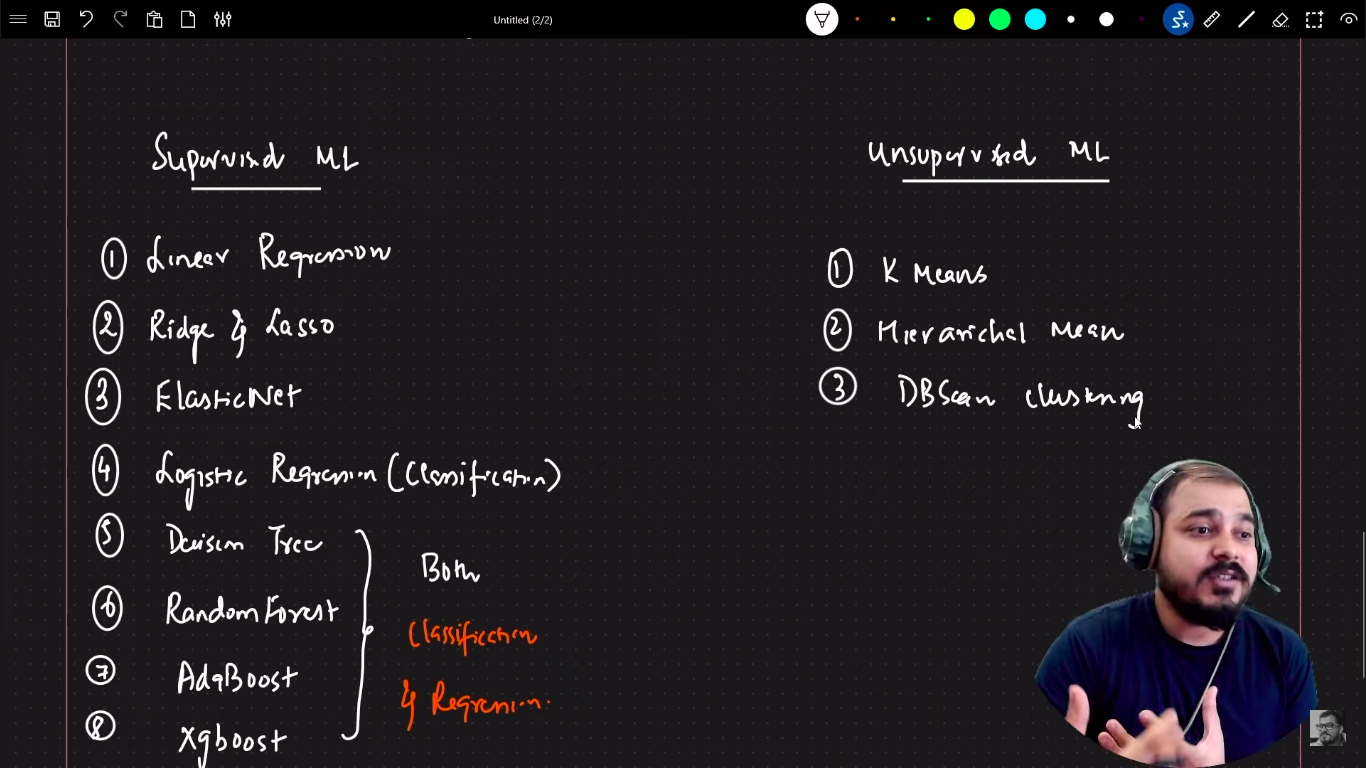 Untitled (2/2)
Supervised ML
① Linear Regression
② Ridge & Lasso
③ ElasticNet
④ Logistic Regression (Classification)
⑤ Decision Tree
⑥ RandomForest
⑦ AdaBoost
⑧ Xgboost
Both
Classification
& Regression.
Unsupervised ML
① K Means
② Hierarichal Mean
③ DBScan clustering